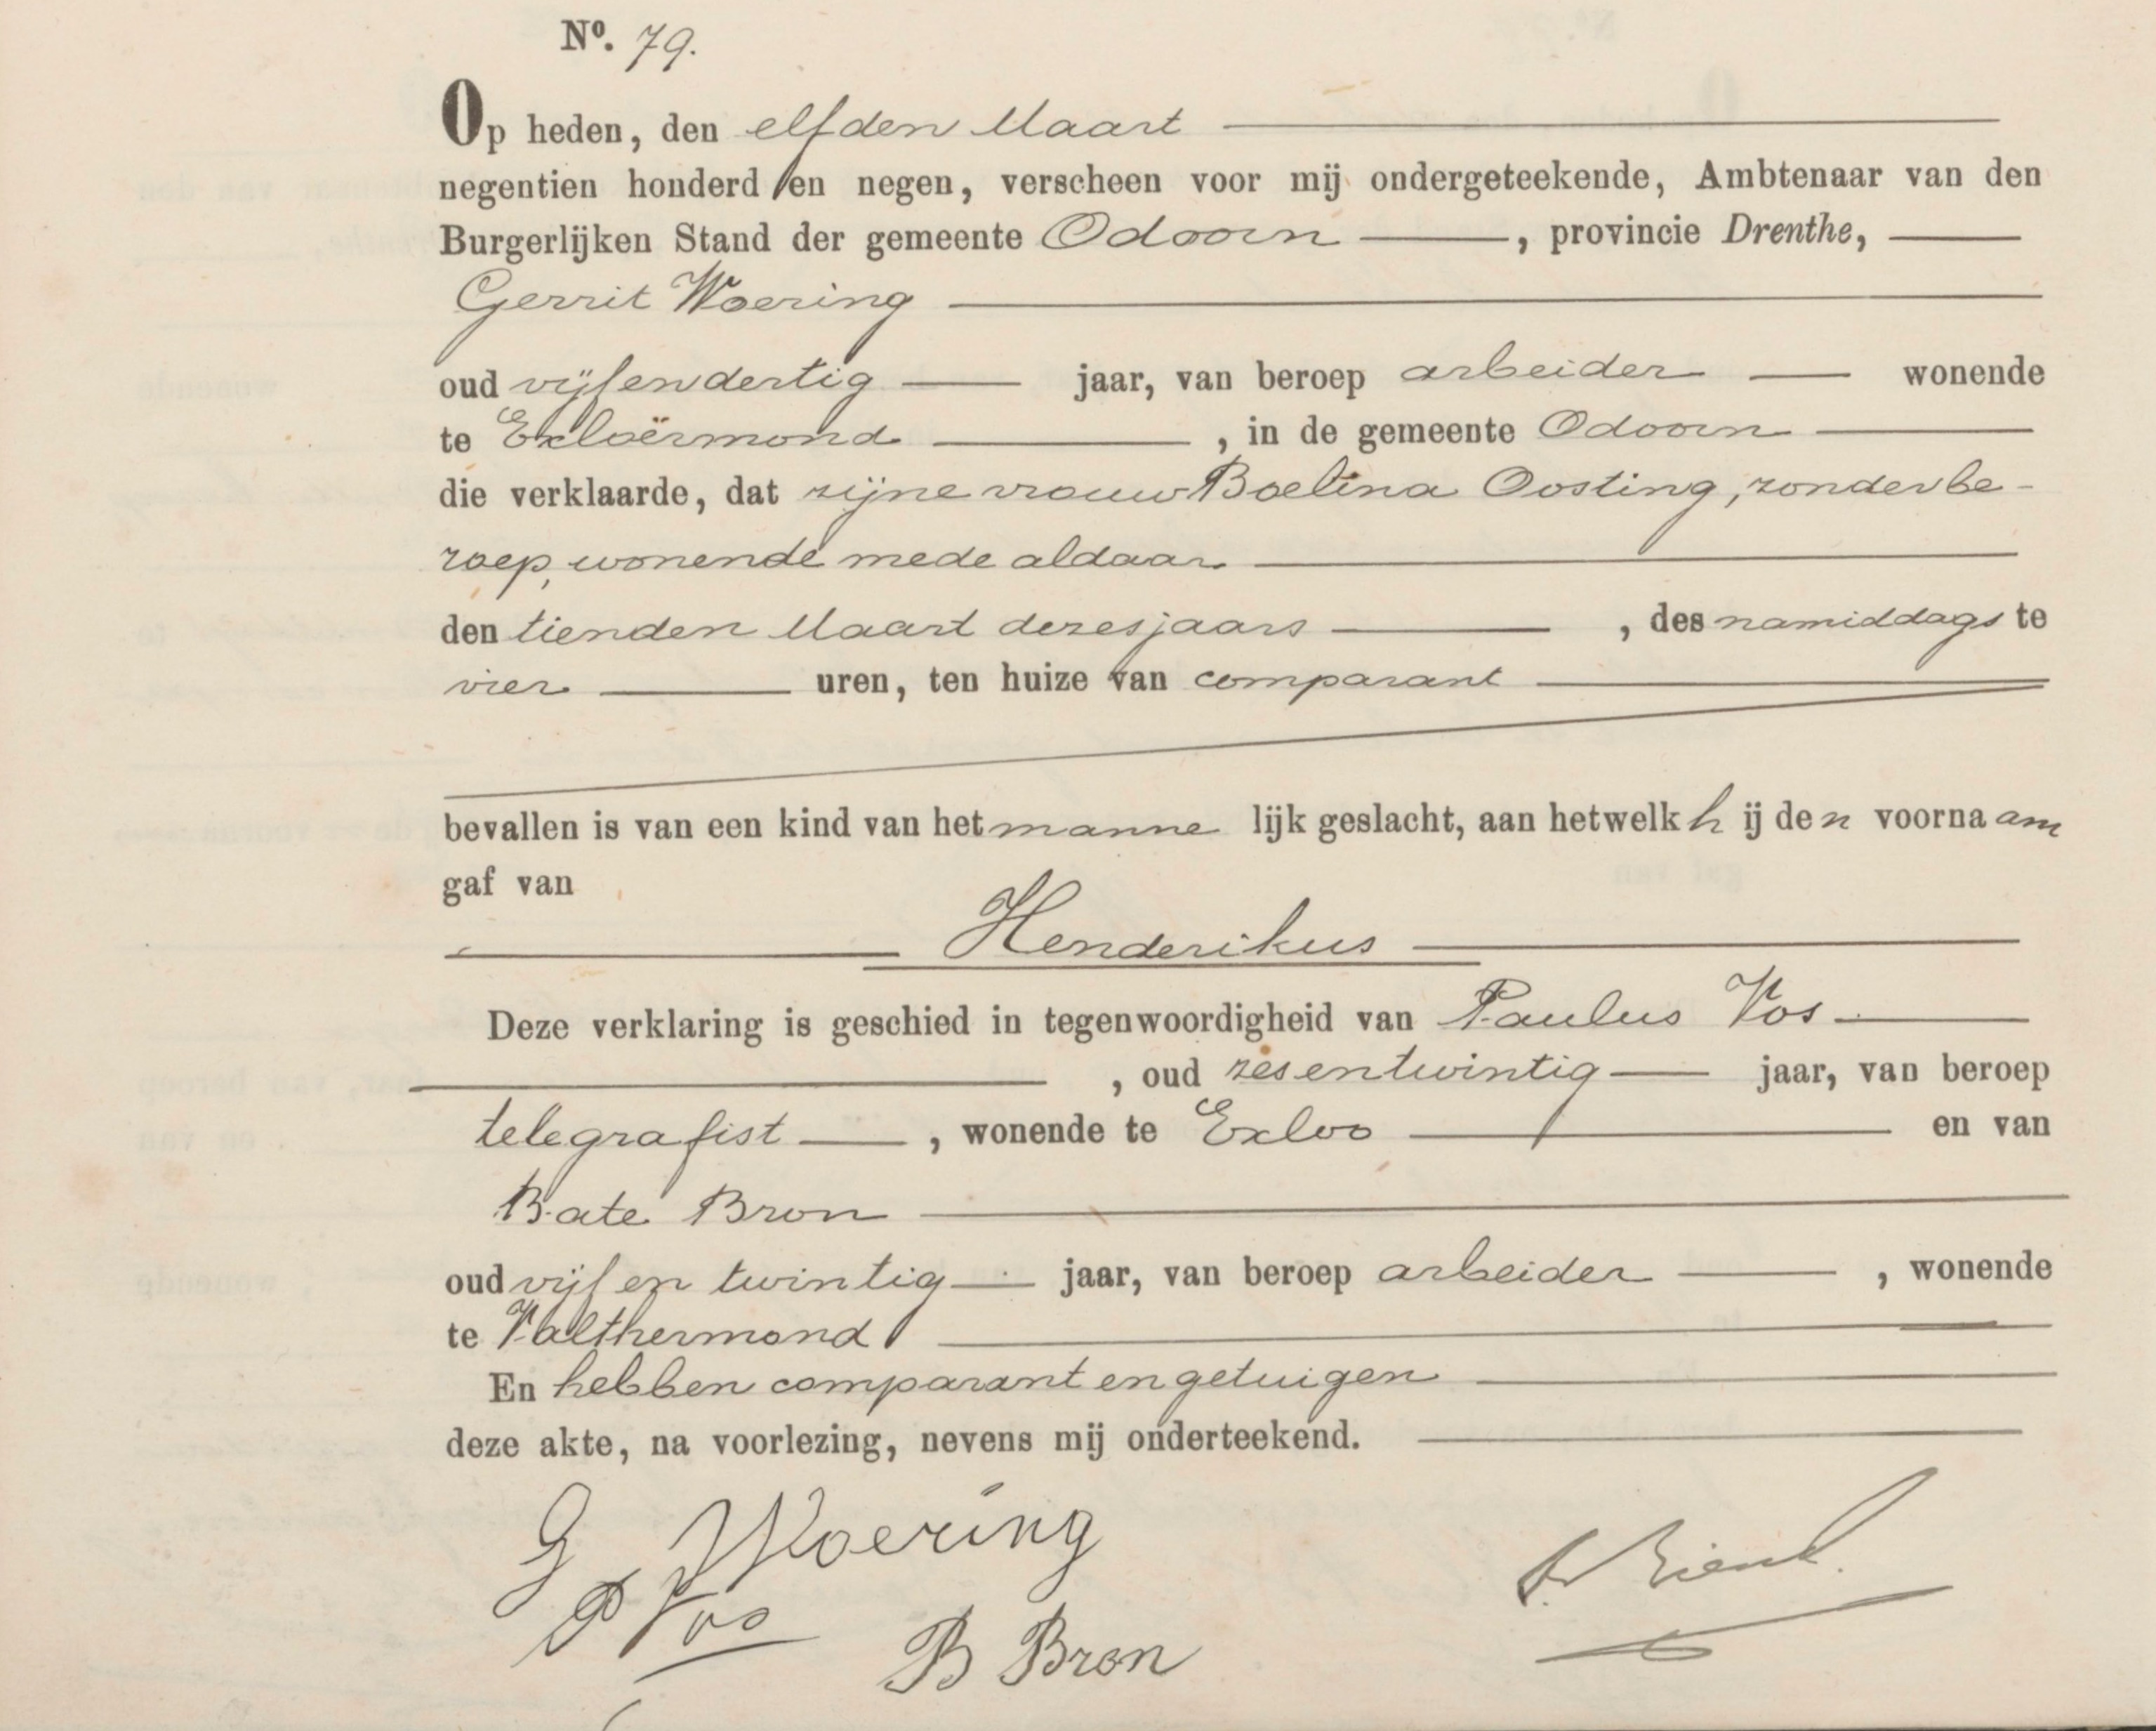 Nº. 79.
Op heden, den elfden Maart
negentien honderd en negen, verscheen voor mij ondergeteekende, Ambtenaar van den
Burgerlijken Stand der gemeente Odoorn, provincie Drenthe,
Gerrit Woering
oud vijfendertig jaar, van beroep arbeider wonende
te Exloërmond, in de gemeente Odoorn
die verklaarde, dat zijne vrouw Boelina Oosting, zonder be-
roep, wonende mede aldaar
den tienden Maart dezes jaars, des namiddags te
vier uren, ten huize van comparant
bevallen is van een kind van het manne lijk geslacht, aan hetwelk h ij de n voorna am
gaf van
Henderikus
Deze verklaring is geschied in tegenwoordigheid van Paulus Vos
, oud zesentwintig jaar, van beroep
telegrafist, wonende te Exloo en van
Bate Bron
oud vijf en twintig jaar, van beroep arbeider, wonende
te Valthermond
En hebben comparant en getuigen
deze akte, na voorlezing, nevens mij onderteekend.
G Woering
P Vos
B Bron